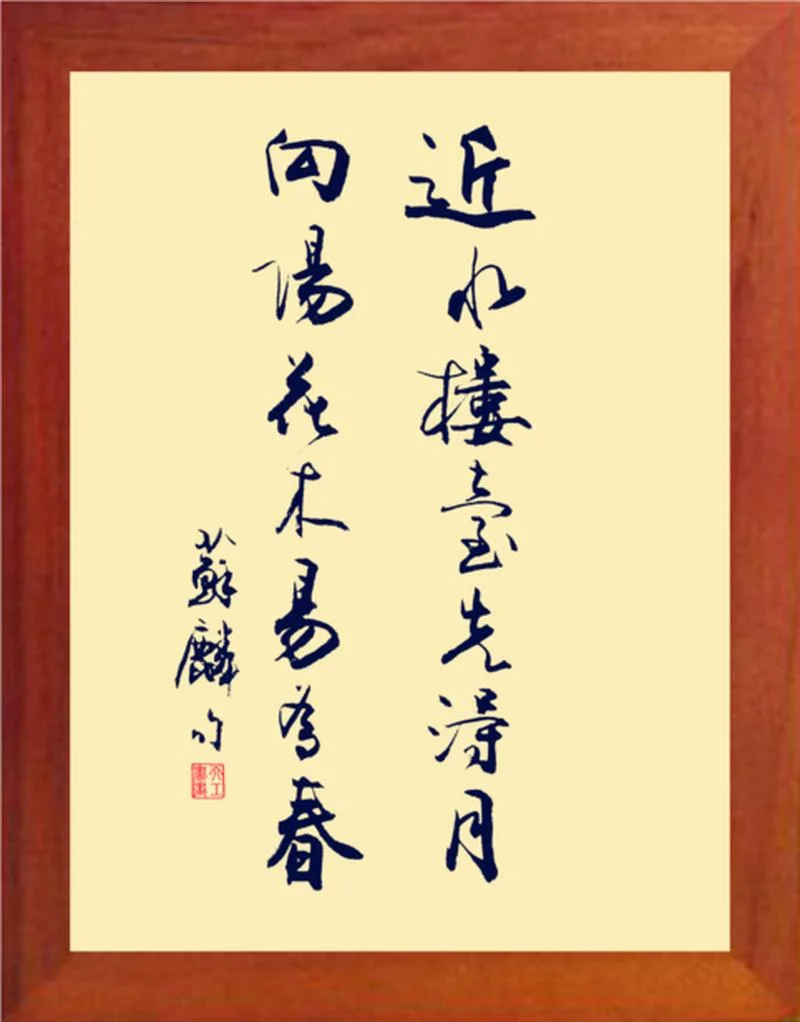 近水樓臺先得月
向陽花木易為春
蘇麟句